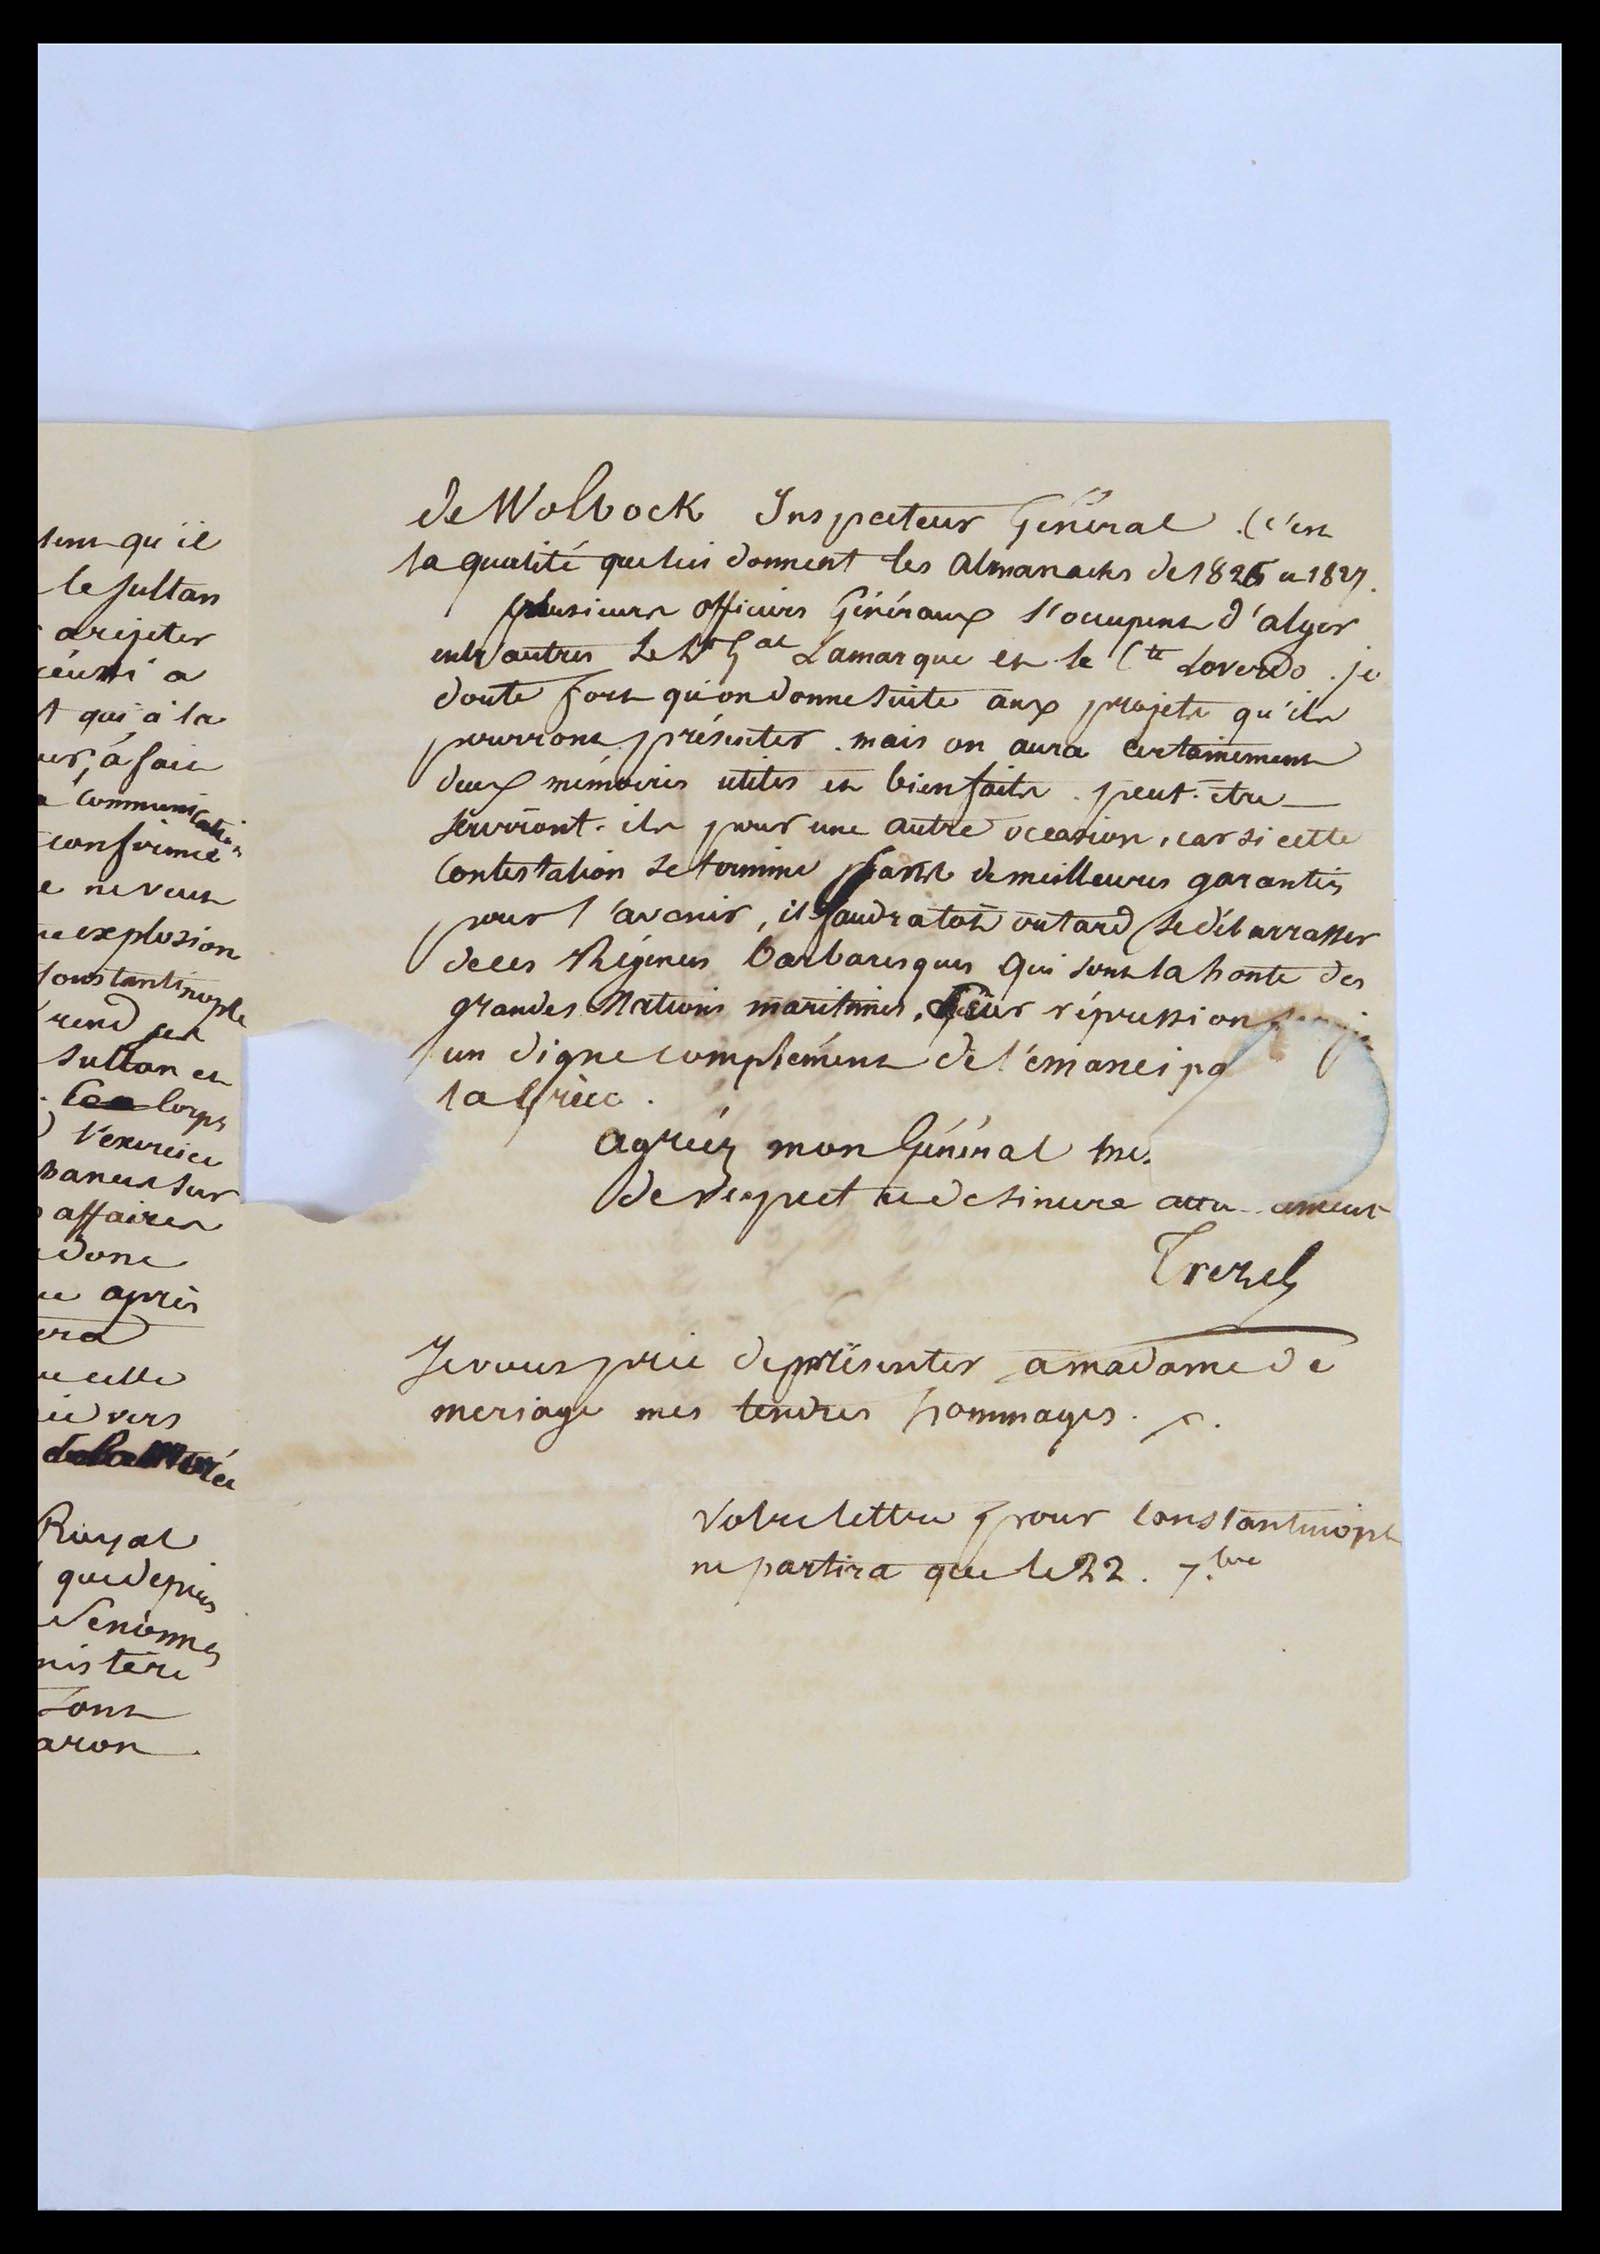 sent qu'il
le sultan
a rejeter
réussi a
t qui à la
à faire
communication
confirmé
e ne veut
explosion
Constantinople
rend
sultan et
corps
l'exercice
sur
affaires
donc
après
cette
vers
de la Morée
Royal
que depuis
aron
de Wolbock Inspecteur Général. (c'est
la qualité que lui donnent les almanachs de 1826 et 1827.
plusieurs officiers Généraux s'occupent d'alger
entr'autres Le Lt Gal Lamarque et le Cte Loverdo. je
doute fort qu'on donne suite aux projets qu'ils
pourront présenter. mais on aura certainement
deux mémoires utiles et bien faits. peut-être
serviront-ils pour une autre occasion, car si cette
contestation se termine sans de meilleures garanties
pour l'avenir, il faudra tôt ou tard se débarrasser
de ces Régences barbaresques qui sont la honte des
grandes Nations maritimes. leur répression
un digne complément de l'émancipa
la Grèce.
agréez mon Général
de respect et de sincère attachement
Trezel
Je vous prie de présenter a madame de
meriage mes tendres hommages.
Votre lettre pour Constantinople
ne partira que le 22. 7.bre